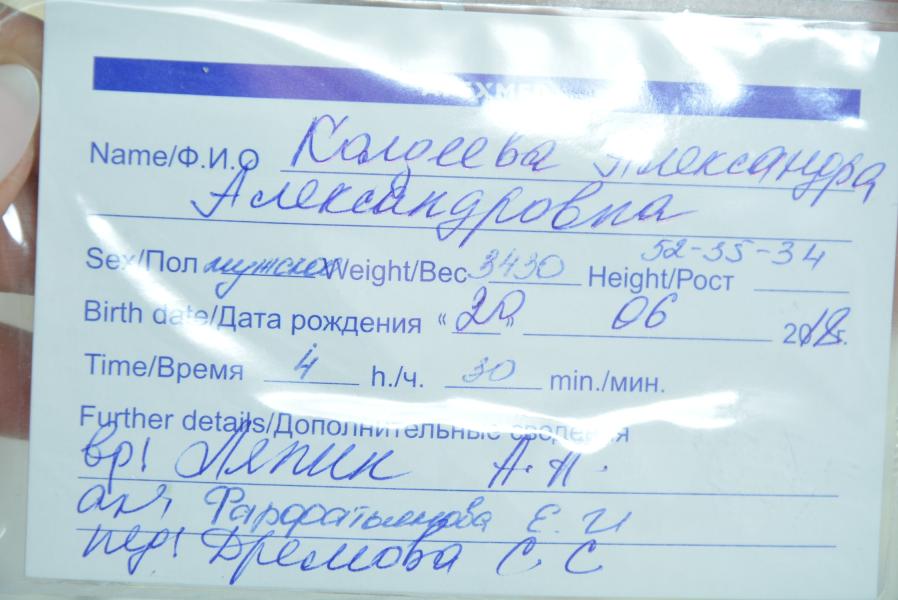 Name/Ф.И.О Колосева Александра
Александровна
Sex/Пол мужской Weight/Вес 3430 Height/Рост 52-35-34
Birth date/Дата рождения “ 20 ” 06 2018г.
Time/Время 4 h./ч. 30 min./мин.
Further details/Дополнительные сведения
вр! Ляпин А.А.
Е. И
пед! Дремова С С